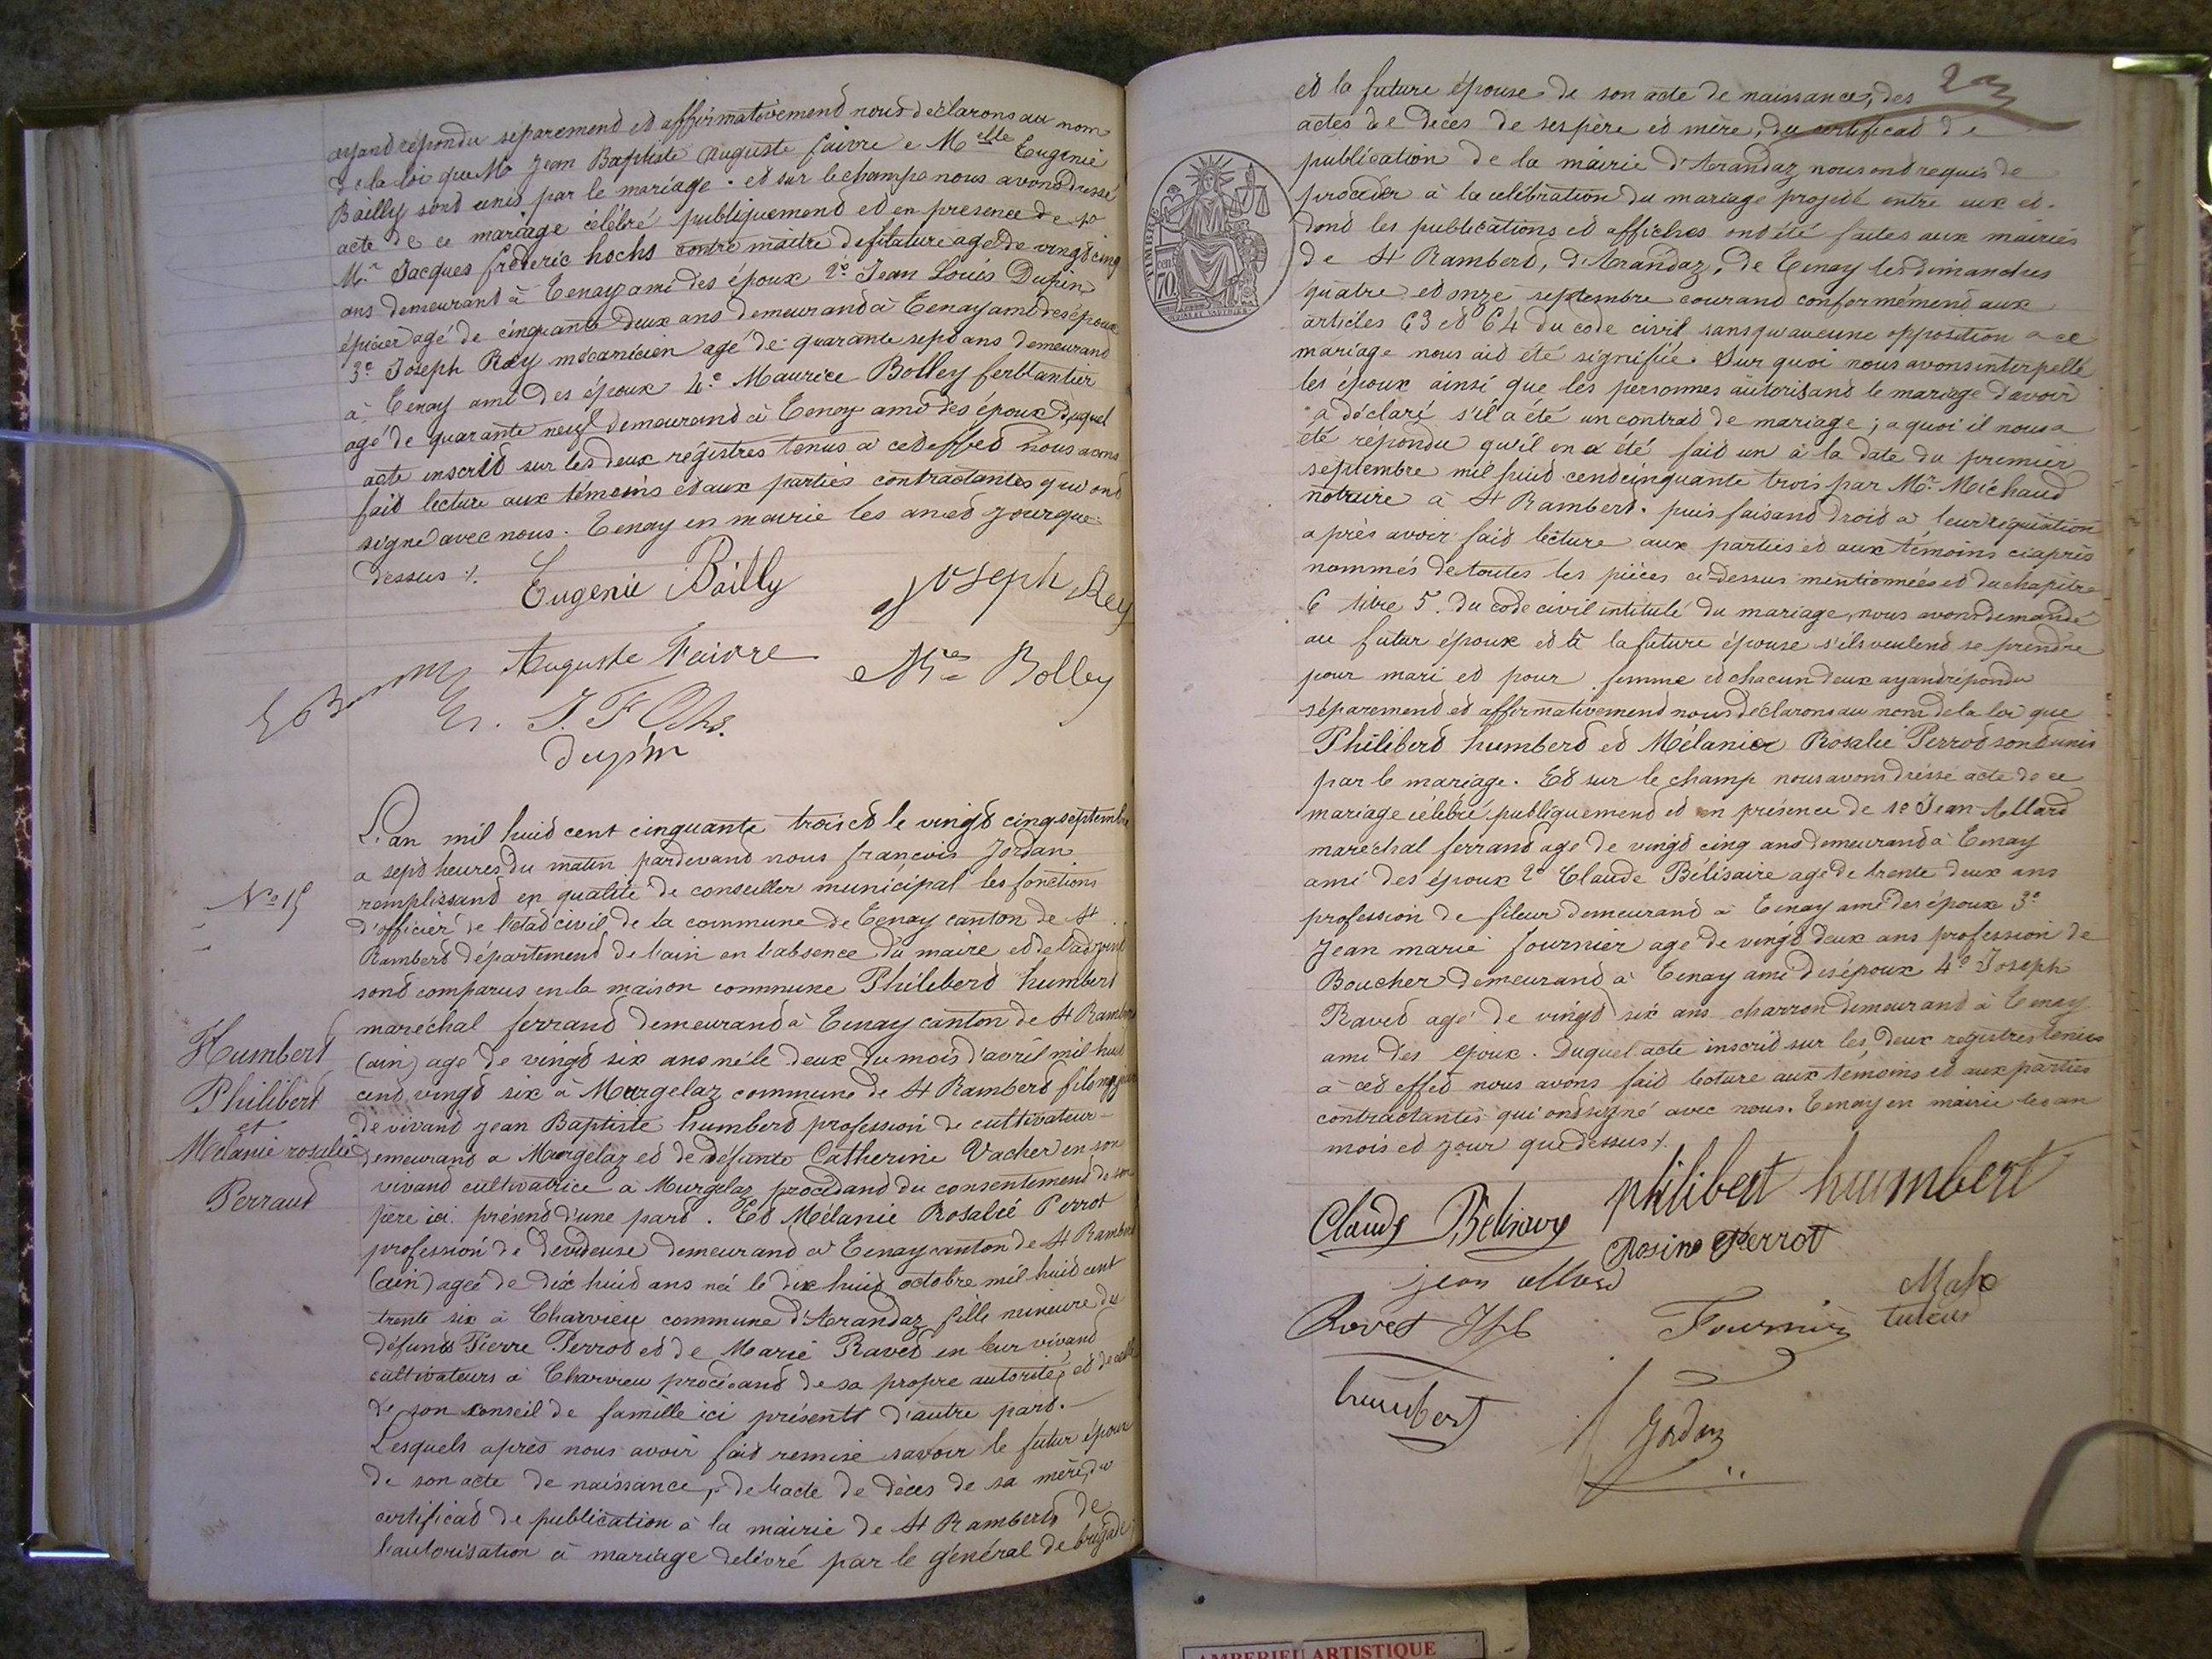 ayant répondu séparement et affirmativement nous déclarons au nom
de la loi que Mr Jean Baptiste Auguste faivre e Melle Eugenie
Bailly sont unis par le mariage. et sur le champ nous avons dressé
acte de ce mariage célébré publiquement et en presence de 1o
Mr Jacques frederic hochs contre maitre de filature agé de vingt cinq
ans demeurant à Tenay ami des époux 2o Jean Louis Dupin
épicier agé de cinquante deux ans demeurant à Tenay ami des époux
3e Joseph Rey mécanicien agé de quarante sept ans demeurant
à Tenay ami des époux 4e Maurice Bolley ferblantier
agé de quarante neuf demeurant à Tenay ami des époux duquel
acte inscrit sur les deux régistres tenus a cet effet nous avons
fait lecture aux témoins et aux parties contractantes qui ont
signé avec nous. Tenay en mairie les an et jour que
dessus ./.
Eugenie Bailly
Joseph Rey
Auguste Faivre
Mce Bolley
J. F Ochs.
dupin
L'an mil huit cent cinquante trois et le vingt cinq septembre
a sept heures du matin pardevant nous françois Jordan
remplissant en qualité de conseiller municipal les fonctions
No 15
d'officier de l'état civil de la commune de Tenay canton de St
Rambert département de l'ain en l'absence du maire et de l'adjoint
sont comparus en la maison commune Philibert humbert
maréchal ferrant demeurant à Tenay canton de St Rambert
Humbert
Philibert
et
Mélanie rosalie
Perraud
(ain) agé de vingt six ans né le deux du mois d'avril mil huit
cent vingt six à Morgelaz commune de St Rambert fils majeur
de vivant jean Baptiste humbert profession de cultivateur
demeurant a Morgelaz et de défunte Catherine Vacher en son
vivant cultivatrice a Morgelaz procédant du consentement de son
père ici présent d'une part. Et Mélanie Rosalie Perrot
profession de devideuse demeurant à Tenay canton de St Rambert
(ain) agée de dix huit ans née le dix huit octobre mil huit cent
trente six à Charvieu commune d'Arandaz fille mineure de
défunts Pierre Perrot et de Marie Ravet en leur vivant
cultivateurs à Charvieu procédant de sa propre autorité et de celle
de son conseil de famille ici présents d'autre part.
Lesquels après nous avoir fait remise savoir le futur époux
de son acte de naissance, de l'acte de décès de sa mère, du
certificat de publication à la mairie de St Rambert, de
l'autorisation à mariage delivré par le général de brigade
23
et la future épouse de son acte de naissance, des
actes de deces de ses père et mère, du certificat de
publication de la mairie d'Arandaz nous ont requis de
procéder à la celébration du mariage projeté entre eux et
dont les publications et affiches ont été faites aux mairies
de St Rambert, d'Arandaz, de Tenay les dimanches
quatre et onze septembre courant conformément aux
articles 63 et 64 du code civil sans qu'aucune opposition a ce
mariage nous ait été signifiée. Sur quoi nous avons interpellé
les époux ainsi que les personnes autorisant le mariage d'avoir
a déclaré s'il a été un contrat de mariage; a quoi il nous a
été répondu qu'il en a été fait un à la date du premier
septembre mil huit cent cinquante trois par Mr Michaud
notaire à St Rambert. puis faisant droit a leur requisition
après avoir fait lecture aux parties et aux témoins ciaprès
nommés de toutes les pièces ci-dessus mentionnées et du chapitre
6 titre 5. du code civil intitulé du mariage, nous avons demandé
au futur époux et à la future épouse s'ils veulent se prendre
pour mari et pour femme et chacun deux ayant répondu
séparement et affirmativement nous déclarons au nom de la loi que
Philibert humbert et Mélanie Rosalie Perrot sont unis
par le mariage. Et sur le champ nous avons dréssé acte de ce
mariage célébré publiquement et en présence de 1o Jean Allard
marechal ferrant agé de vingt cinq ans demeurant à Tenay
ami des époux 2o Claude Bélisaire agé de trente deux ans
profession de fileur demeurant à Tenay ami des époux 3o
Jean marie fournier agé de vingt deux ans profession de
Boucher demeurant à Tenay ami des époux 4o Joseph
Ravet agé de vingt six ans charron demeurant à Tenay
ami des époux. Duquel acte inscrit sur les deux registres tenus
à cet effet nous avons fait lecture aux temoins et aux parties
contractantes qui ont signé avec nous. Tenay en mairie les an
mois et jour que dessus ./.
philibert humbert
Claude Belisaire
Rosine Perrot
jean allard
Ravet Jph
Fournier
tuteur
humbert
Jordan
TIMBRE
70
AMBERIEU ARTISTIQUE